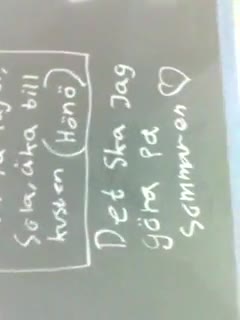 Det Ska Jag
göra på
Sommaren ♡
Sola, åka till
kusten (Hönö)